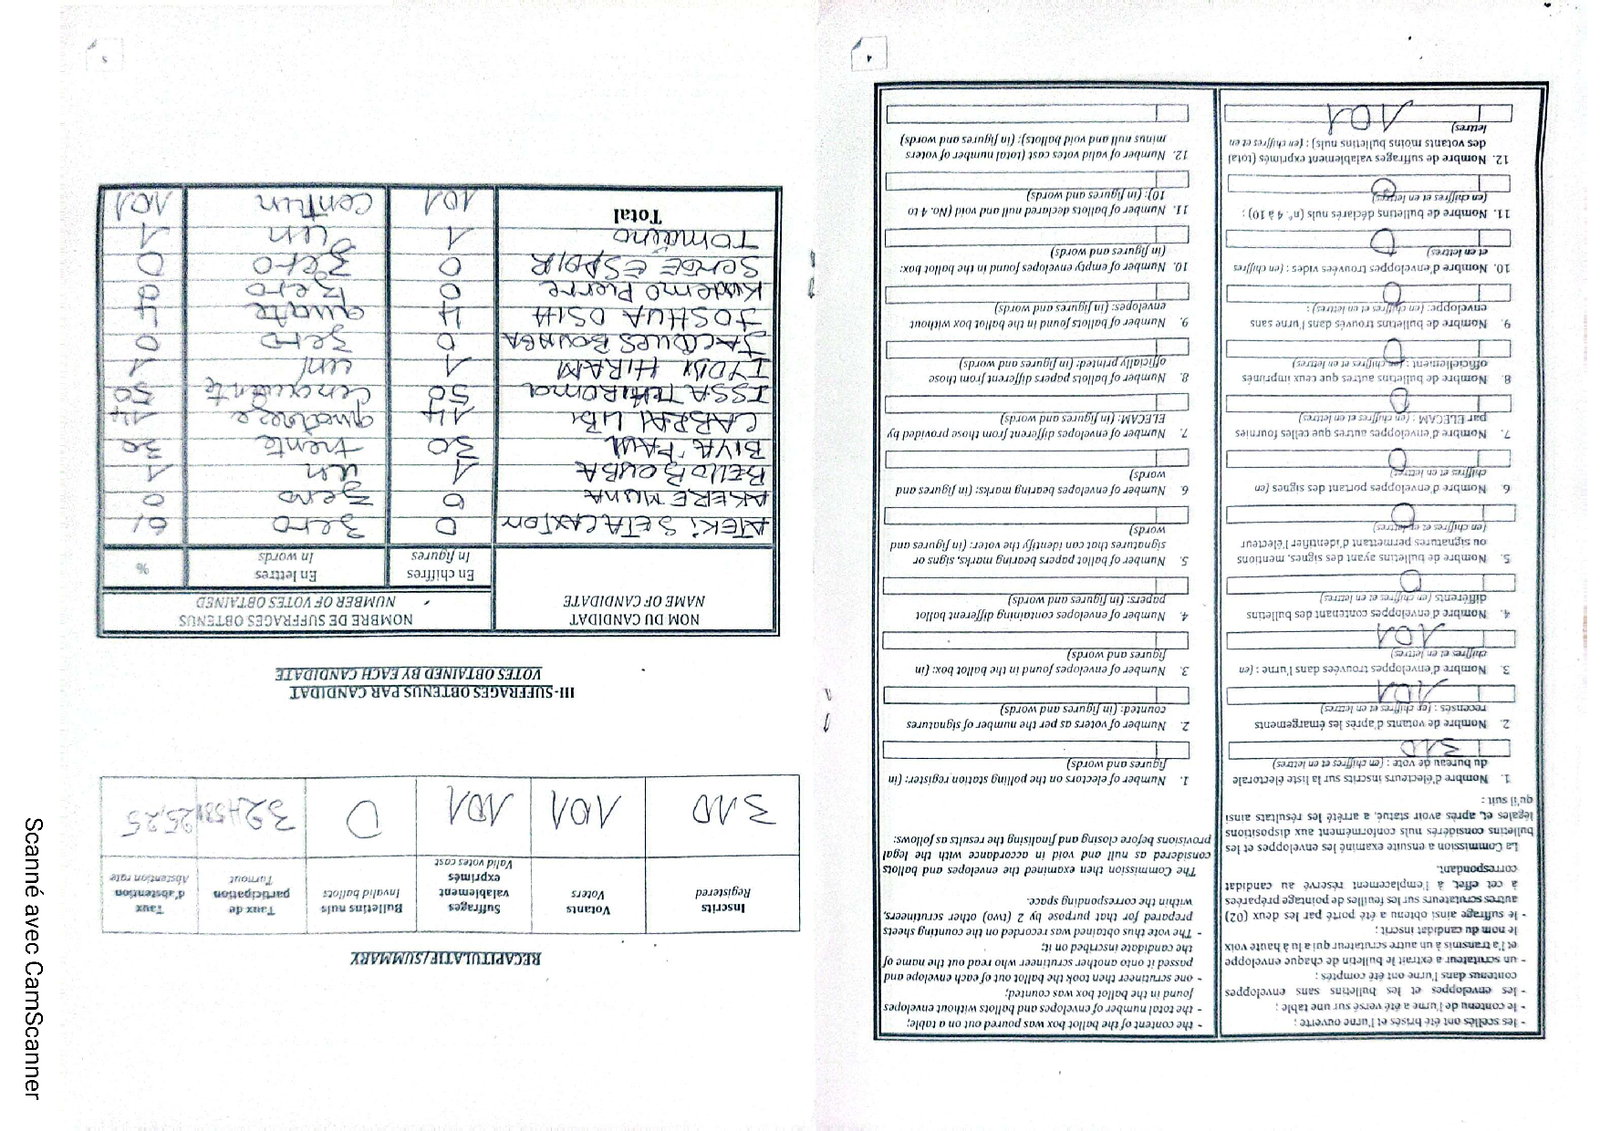 4
- les scellés ont été brisés et l'urne ouverte ;
- le contenu de l'urne a été versé sur une table ;
- les enveloppes et les bulletins sans enveloppes
contenus dans l'urne ont été comptés ;
- un scrutateur a extrait le bulletin de chaque enveloppe
et l'a transmis à un autre scrutateur qui a lu à haute voix
le nom du candidat inscrit ;
- le suffrage ainsi obtenu a été porté par les deux (02)
autres scrutateurs sur les feuilles de pointage préparées
à cet effet, à l'emplacement réservé au candidat
correspondant.
La Commission a ensuite examiné les enveloppes et les
bulletins considérés nuls conformément aux dispositions
légales et, après avoir statué, a arrêté les résultats ainsi
qu'il suit :
1. Nombre d'électeurs inscrits sur la liste électorale
du bureau de vote : (en chiffres et en lettres)
310
2. Nombre de votants d'après les émargements
recensés : (en chiffres et en lettres)
101
3. Nombre d'enveloppes trouvées dans l'urne : (en
chiffres et en lettres)
101
4. Nombre d'enveloppes contenant des bulletins
différents (en chiffres et en lettres)
0
5. Nombre de bulletins ayant des signes, mentions
ou signatures permettant d'identifier l'électeur
(en chiffres et en lettres)
0
6. Nombre d'enveloppes portant des signes (en
chiffres et en lettres)
0
7. Nombre d'enveloppes autres que celles fournies
par ELECAM : (en chiffres et en lettres)
0
8. Nombre de bulletins autres que ceux imprimés
officiellement : (en chiffres et en lettres)
0
9. Nombre de bulletins trouvés dans l'urne sans
enveloppe: (en chiffres et en lettres) :
0
10. Nombre d'enveloppes trouvées vides : (en chiffres
et en lettres)
0
11. Nombre de bulletins déclarés nuls (n°. 4 à 10) :
(en chiffres et en lettres)
0
12. Nombre de suffrages valablement exprimés (total
des votants moins bulletins nuls) : (en chiffres et en
lettres)
101
- the content of the ballot box was poured out on a table;
- the total number of envelopes and ballots without envelopes
found in the ballot box was counted;
- one scrutineer then took the ballot out of each envelope and
passed it onto another scrutineer who read out the name of
the candidate inscribed on it;
- The vote thus obtained was recorded on the counting sheets
prepared for that purpose by 2 (two) other scrutineers,
within the corresponding space.
The Commission then examined the envelopes and ballots
considered as null and void in accordance with the legal
provisions before closing and finalising the results as follows:
1. Number of electors on the polling station register: (in
figures and words)
2. Number of voters as per the number of signatures
counted: (in figures and words)
3. Number of envelopes found in the ballot box: (in
figures and words)
4. Number of envelopes containing different ballot
papers: (in figures and words)
5. Number of ballot papers bearing marks, signs or
signatures that can identify the voter: (in figures and
words)
6. Number of envelopes bearing marks: (in figures and
words)
7. Number of envelopes different from those provided by
ELECAM: (in figures and words)
8. Number of ballots papers different from those
officially printed: (in figures and words)
9. Number of ballots found in the ballot box without
envelopes: (in figures and words)
10. Number of empty envelopes found in the ballot box:
(in figures and words)
11. Number of ballots declared null and void (No. 4 to
10): (in figures and words)
12. Number of valid votes cast (total number of voters
minus null and void ballots): (in figures and words)
5
RECAPITULATIF/SUMMARY
Inscrits Registered | Votants Voters | Suffrages valablement exprimés Valid votes cast | Bulletins nuls Invalid ballots | Taux de participation Turnout | Taux d'abstention Abstention rate
310 | 101 | 101 | 0
III- SUFFRAGES OBTENUS PAR CANDIDAT
VOTES OBTAINED BY EACH CANDIDATE
NOM DU CANDIDAT NAME OF CANDIDATE | NOMBRE DE SUFFRAGES OBTENUS NUMBER OF VOTES OBTAINED
En chiffres In figures | En lettres In words | %
ATEKI SETA CAXTON | 0 | Zero
AKERE MUNA | 0 | Zero | 0
BELLO BOUBA | 1 | un | 1
BIYA PAUL | 30 | trente | 30
CABRAL LIBI | 14 | quatorze | 14
ISSA TCHIROMA | 50 | cinquante | 50
IYODI HIRAM | 1 | un | 1
JACQUES BOUNGA | 0 | Zero | 0
JOSHUA OSIH | 4 | quatre | 4
Kwemo Pierre | 0 | Zero | 0
SERGE ESPOIR | 0 | Zero | 0
TOMAINO | 1 | un | 1
Total | 101 | Cent un | 101
Scanné avec CamScanner